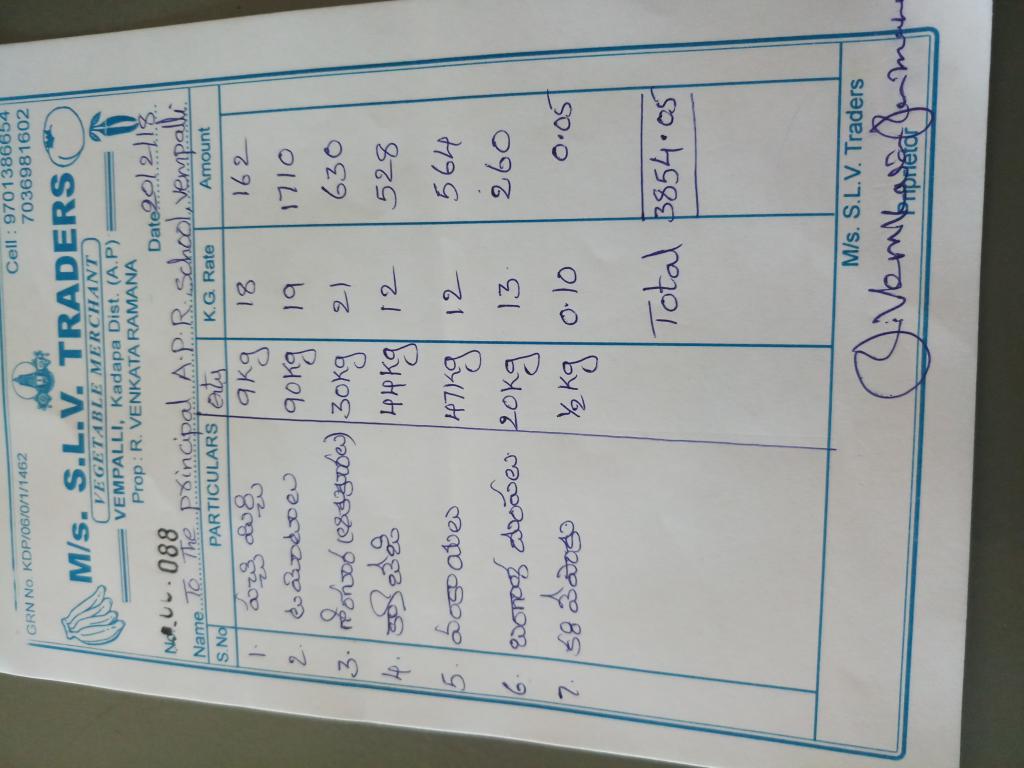 GRN No KDP/06/0/1/1462
Cell : 9701386654
7036981602
M/s. S.L.V. TRADERS
VEGETABLE MERCHANT
VEMPALLI, Kadapa Dist. (A.P)
Prop : R. VENKATA RAMANA
No. 088 Date 20/2/18
Name To The principal A.P.R. School, vempalli.
S.No PARTICULARS Qty K.G. Rate Amount
1. పచ్చి మిర్చి 9Kg 18 162
2. టమోటాలు 90Kg 19 1710
3. 30Kg 21 630
4. 44Kg 12 528
5. వంకాయలు 47Kg 12 564
6. 20Kg 13 260
7. ½ Kg 0.10 0.05
Total 3854.05
M/s. S.L.V. Traders